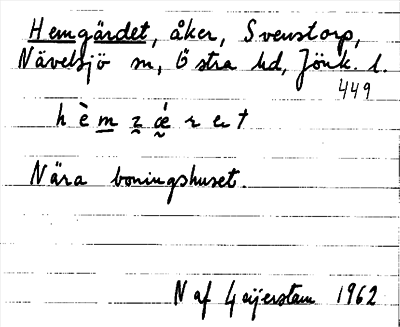 Hemgärdet, åker, Svenstorp,
Nävelsjö sn, Östra hd, Jönk. l.
449
Nära boningshuset.
N af Geijerstam 1962